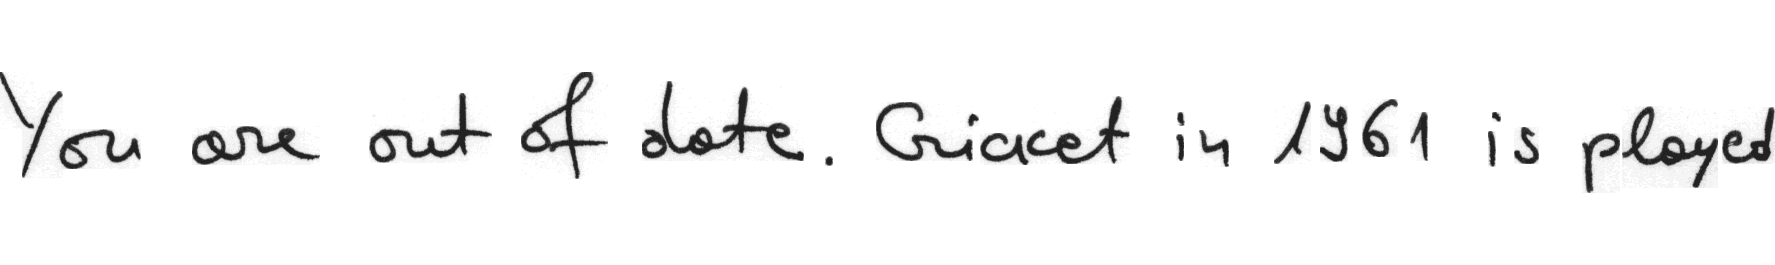 You are out of date. Cricket in 1961 is played